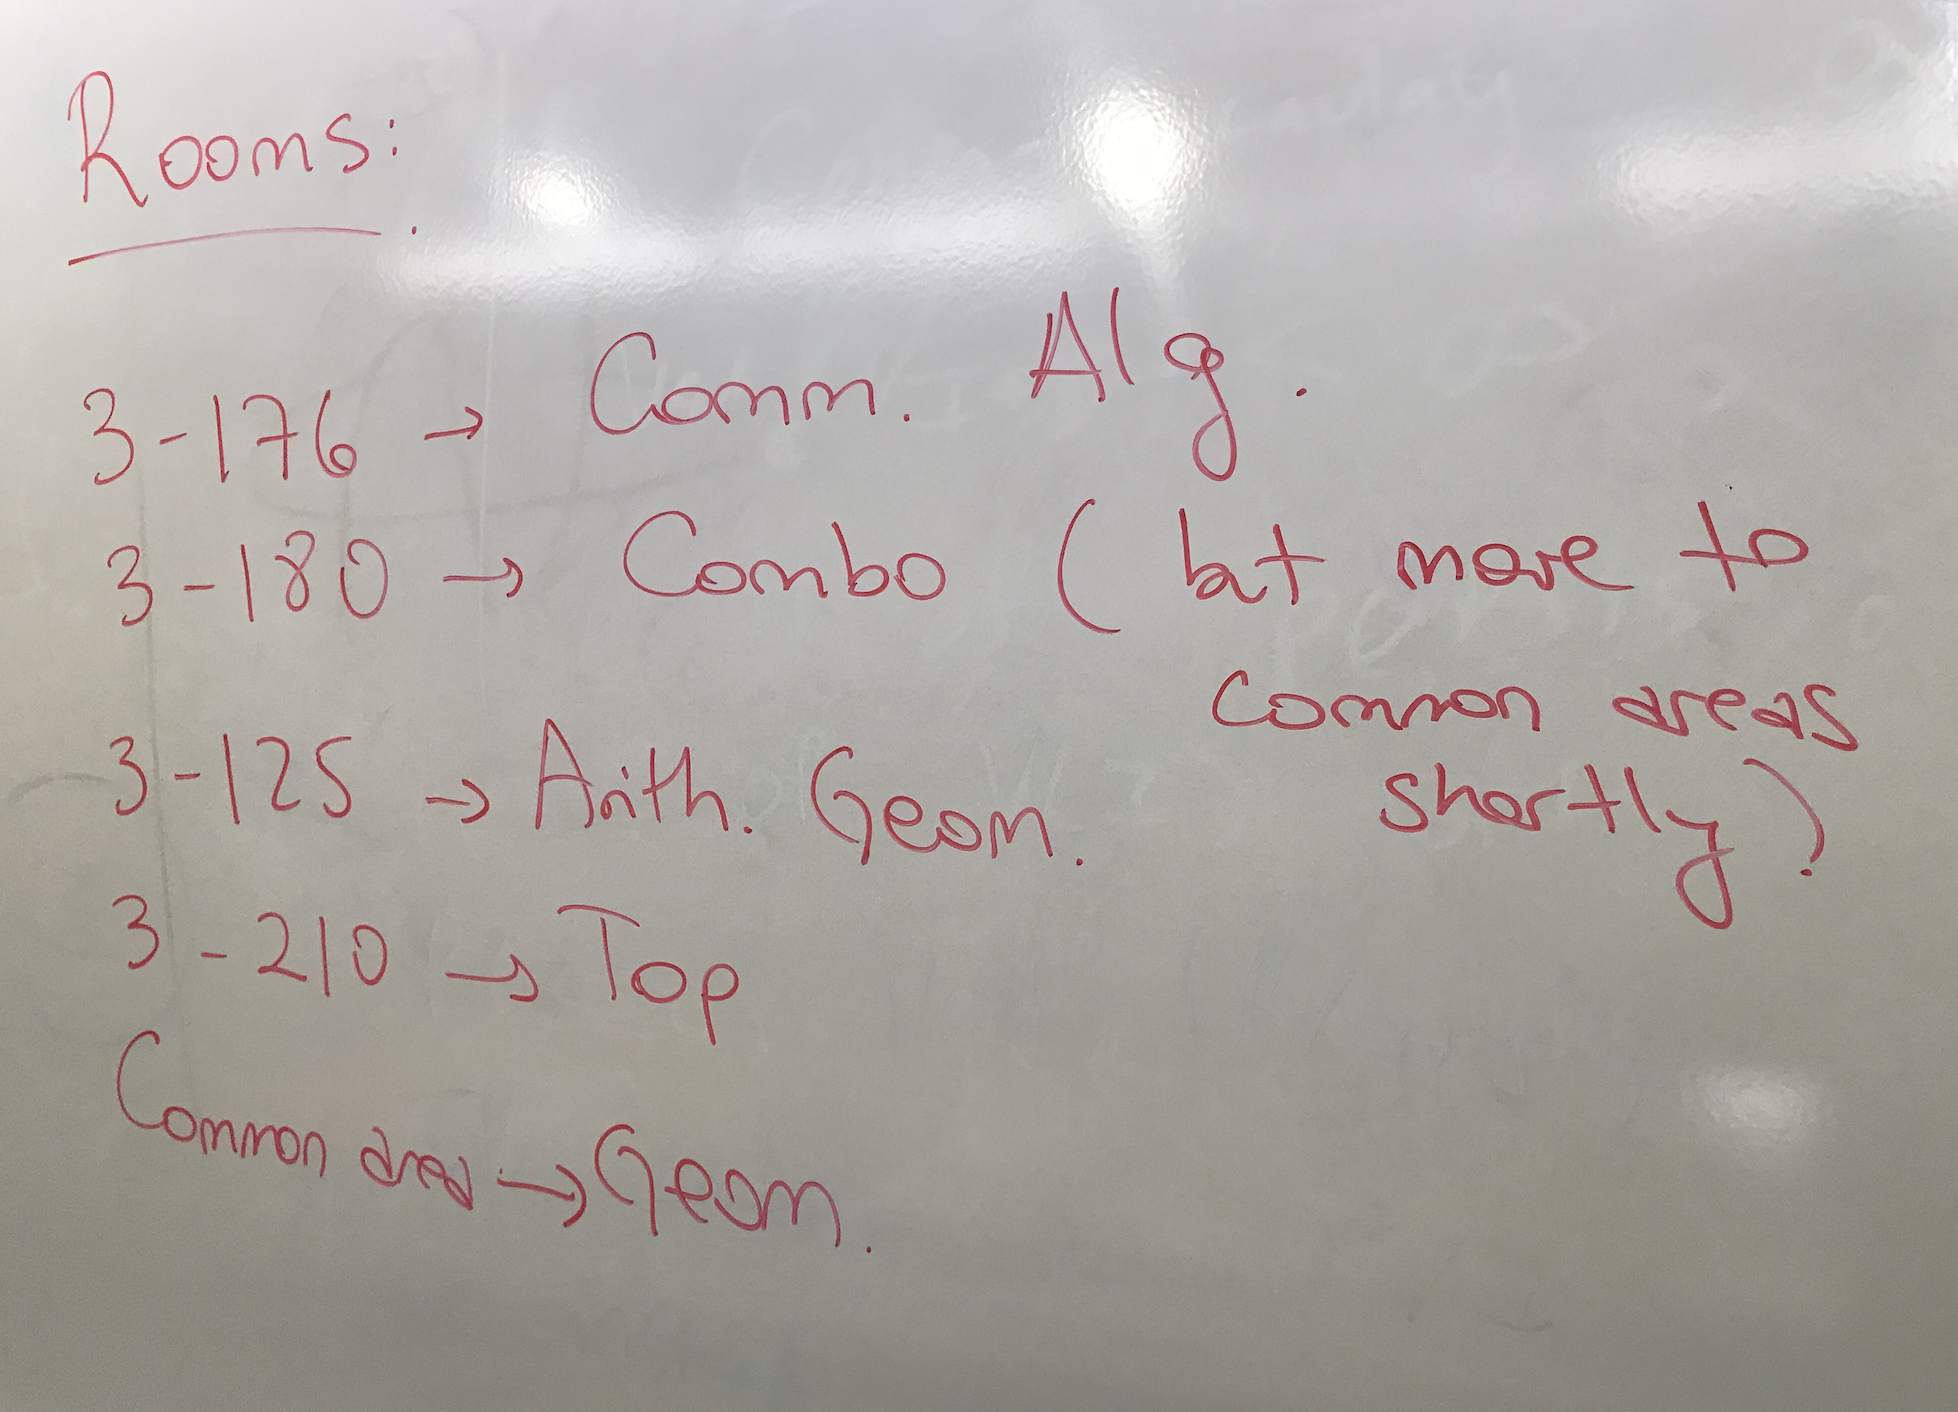 Rooms:
3-176 → Comm. Alg.
3-180 → Combo (but move to
common areas
shortly)
3-125 → Arith. Geom.
3-210 → Top
Common area → Geom.